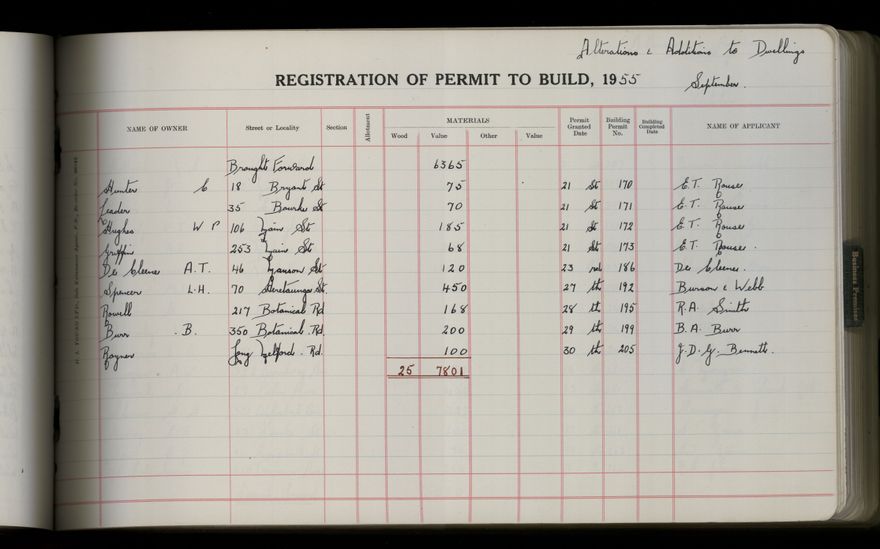 Alterations & Additions to Dwellings
REGISTRATION OF PERMIT TO BUILD, 1955 September.
NAME OF OWNER Street or Locality Section Allotment MATERIALS Wood Value Other Value Permit Granted Date Building Permit No. Building Completed Date NAME OF APPLICANT
Brought Forward 6365
Hunter C 18 Bryant St 75 21 st 170 E.T. Rouse
Leader 35 Bourke St 70 21 st 171 E.T. Rouse
Hughes W P 106 St 185 21 st 172 E.T. Rouse
Griffin 253 St 68 21 st 173 E.T. Rouse.
De Cleene A.T. 46 St 120 23 rd 186 De Cleene.
Spencer L.H. 70 Heretaunga St. 450 27 th 192 & Webb
Rowell 217 Botanical Rd 168 28 th 195 R.A. Smith
Burr B. 350 Botanical Rd. 200 29 th 199 B.A. Burr
Rayner Rd. 100 30 th 205 J.D.G. Bennett.
25 7801
Business Premises